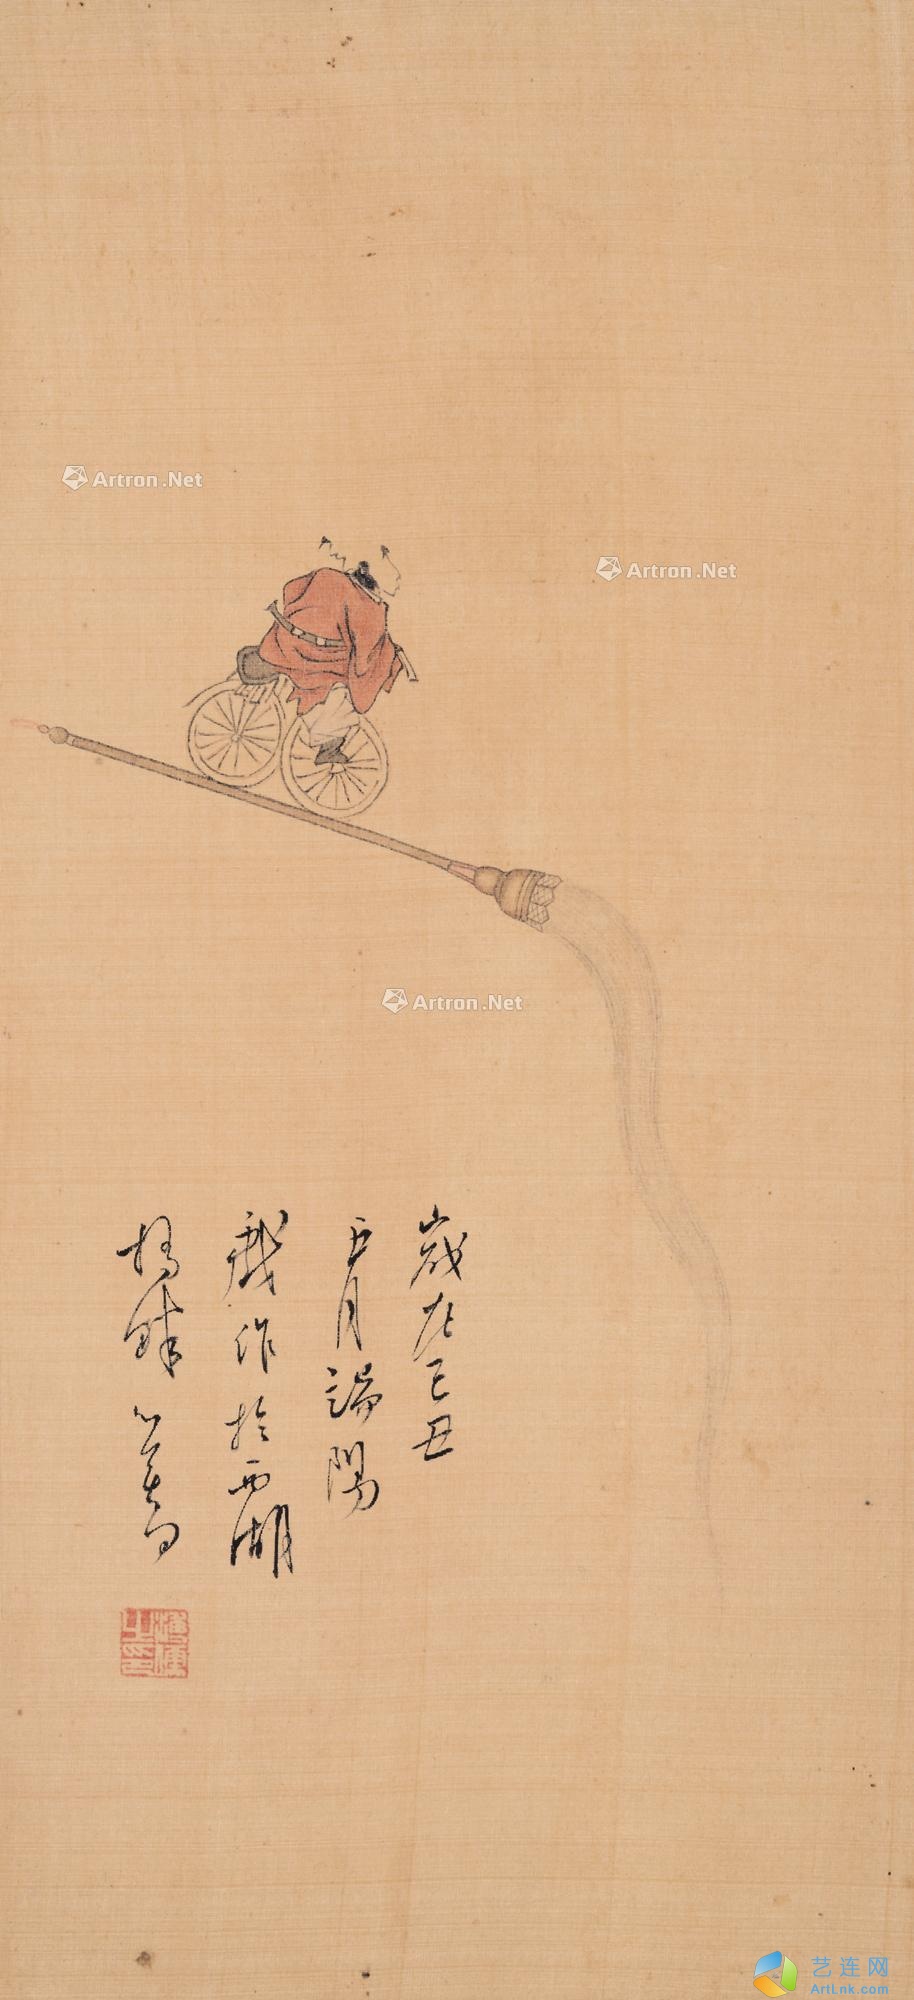 Artron.Net
Artron.Net
Artron.Net
歲在己丑
五月端陽
戲作於西湖
橋畔 心畬
艺连网
ArtLnk.com